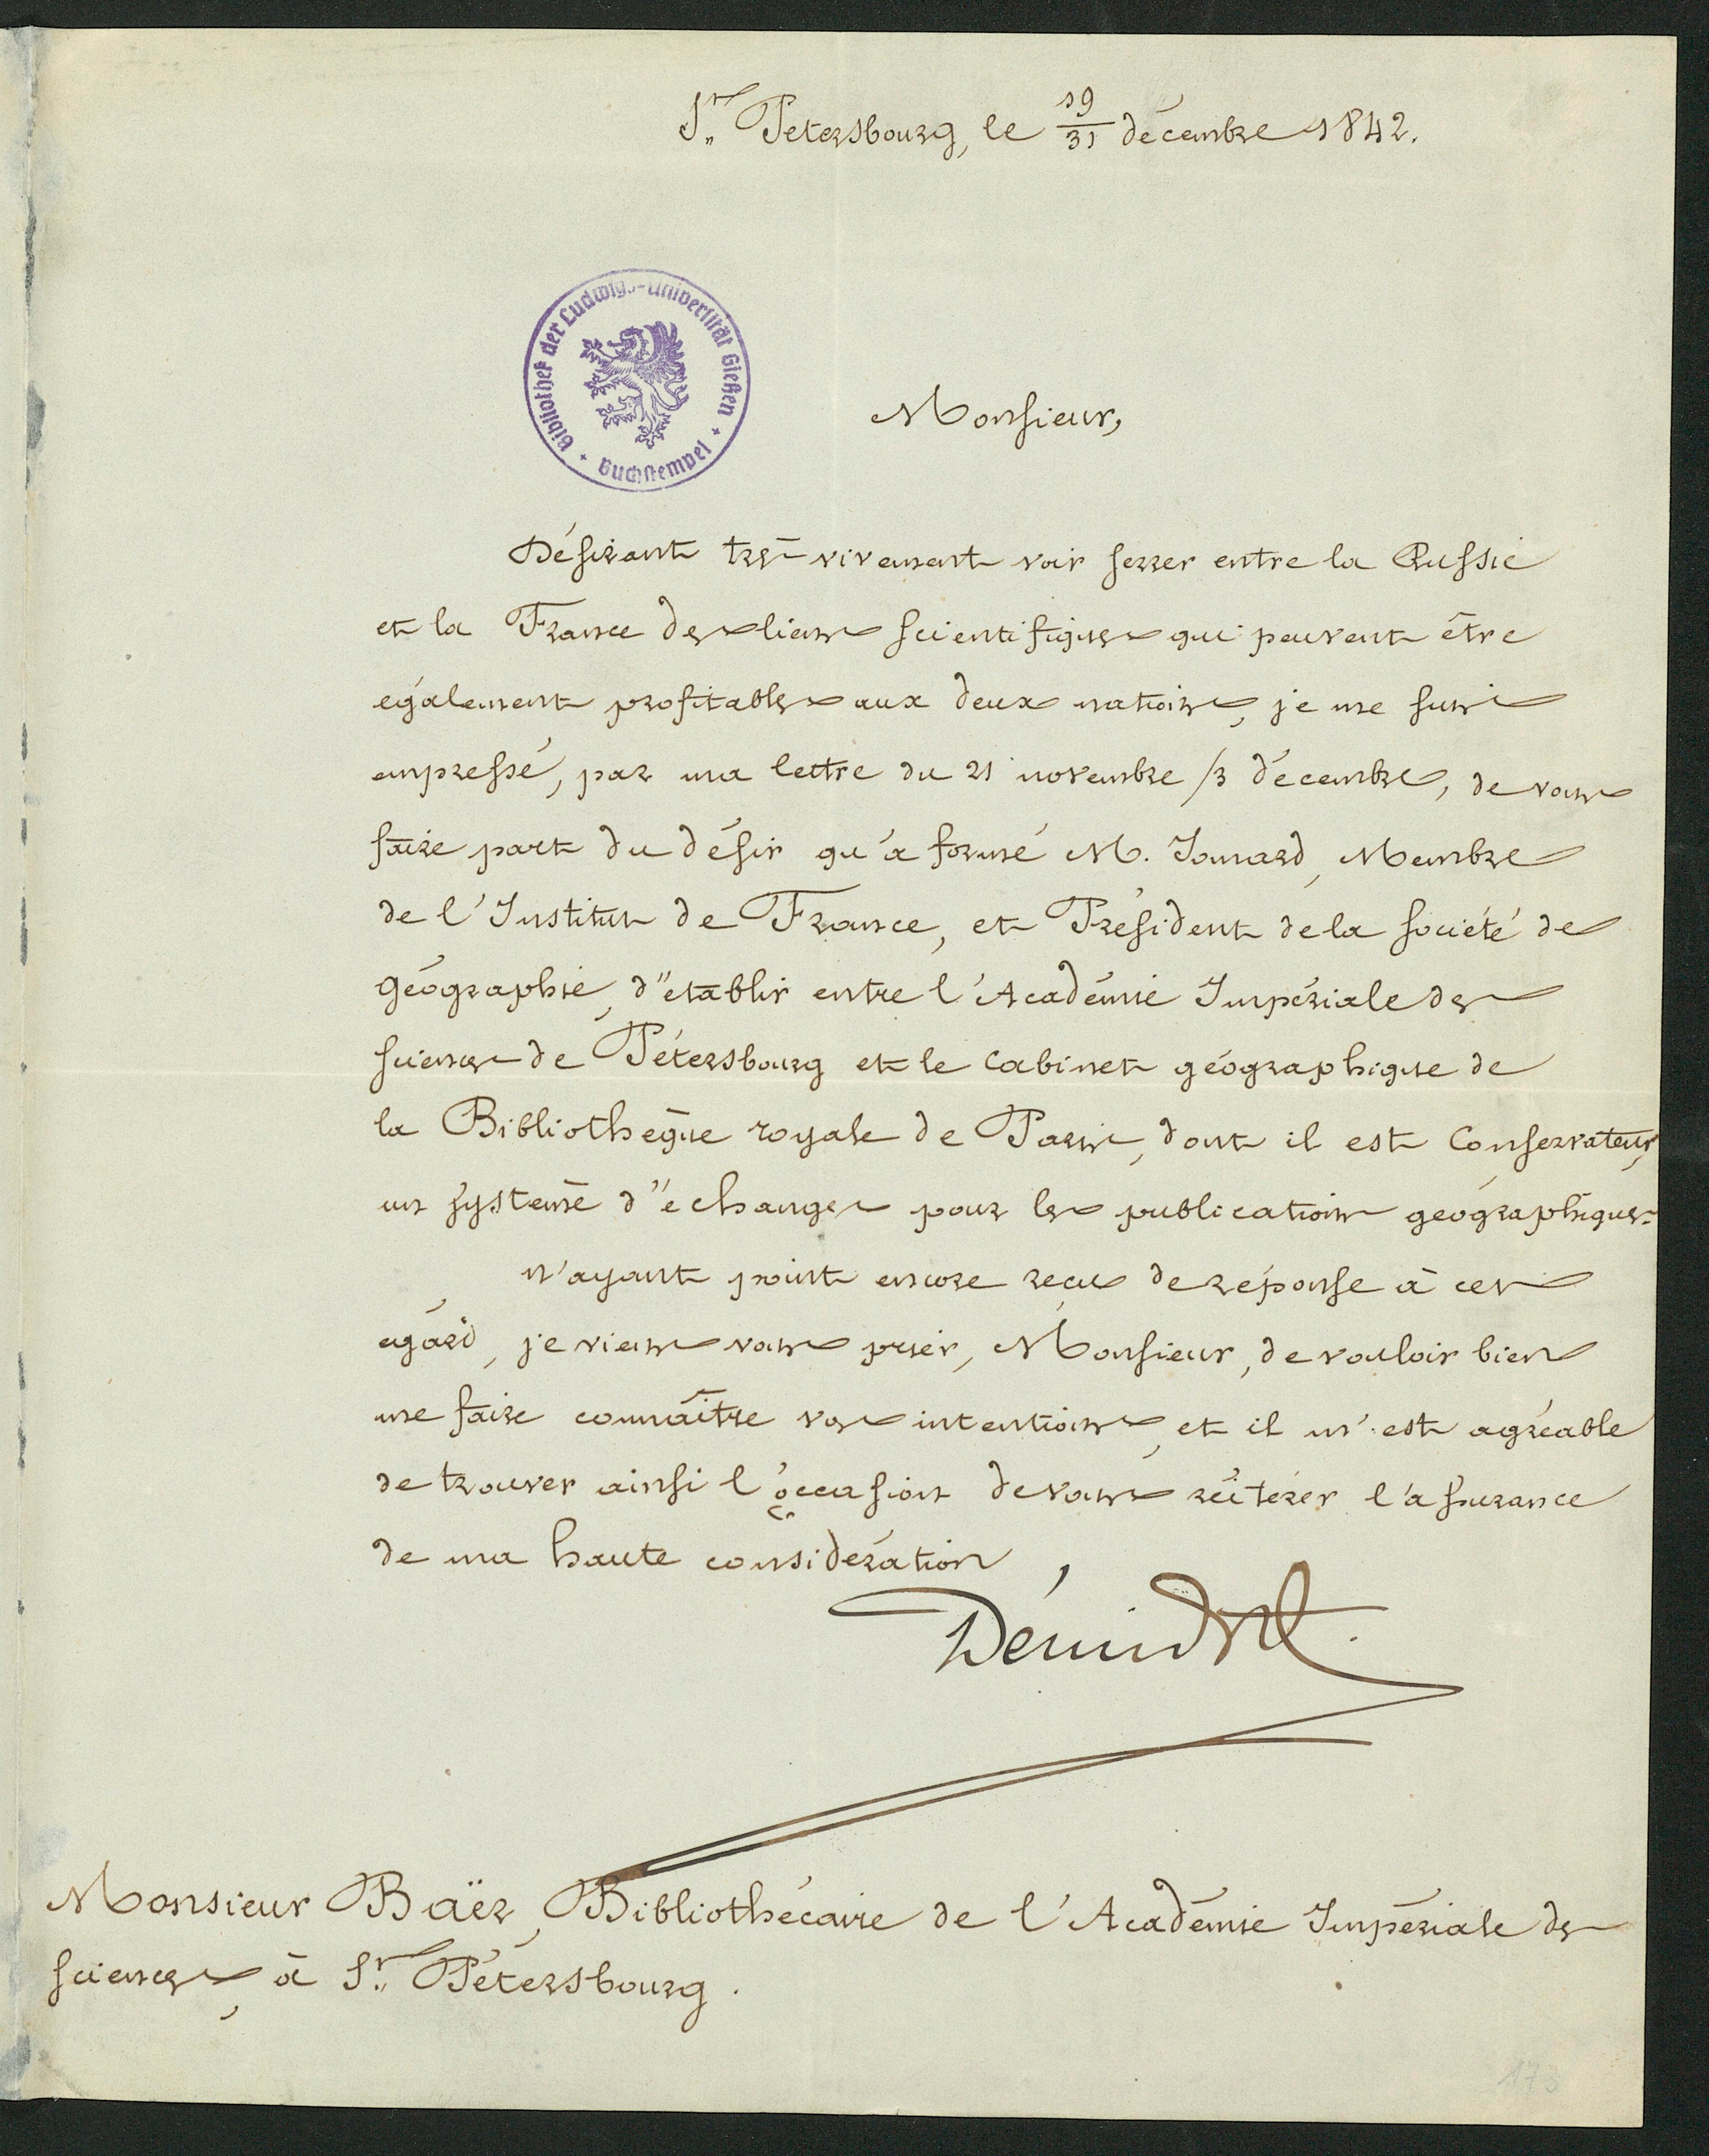 St. Pétersbourg, le 19/31 décembre 1842.
Bibliothek der Ludwigs-Universität Gießen + Buchstempel +
Monsieur,
Désirant très-vivement voir serrer entre la Russie
et la France des liens scientifiques qui peuvent être
également profitables aux deux nations, je me suis
empressé, par ma lettre du 21 novembre /3 décembre, de vous
faire part du désir qu'a formé M. Jomard, Membre
de l'Institut de France, et Président de la société de
géographie, d'établir entre l'Académie Impériale des
sciences de Pétersbourg et le Cabinet géographique de
la Bibliothèque royale de Paris, dont il est Conservateur,
un système d'échanges pour les publications géographiques.
N'ayant point encore reçu de réponse à cet
égard, je viens vous prier, Monsieur, de vouloir bien
me faire connaître vos intentions, et il m'est agréable
de trouver ainsi l'occasion de vous réitérer l'assurance
de ma haute considération
Démidoff.
Monsieur Baër, Bibliothécaire de l'Académie Impériale des
sciences, à St. Pétersbourg.
173